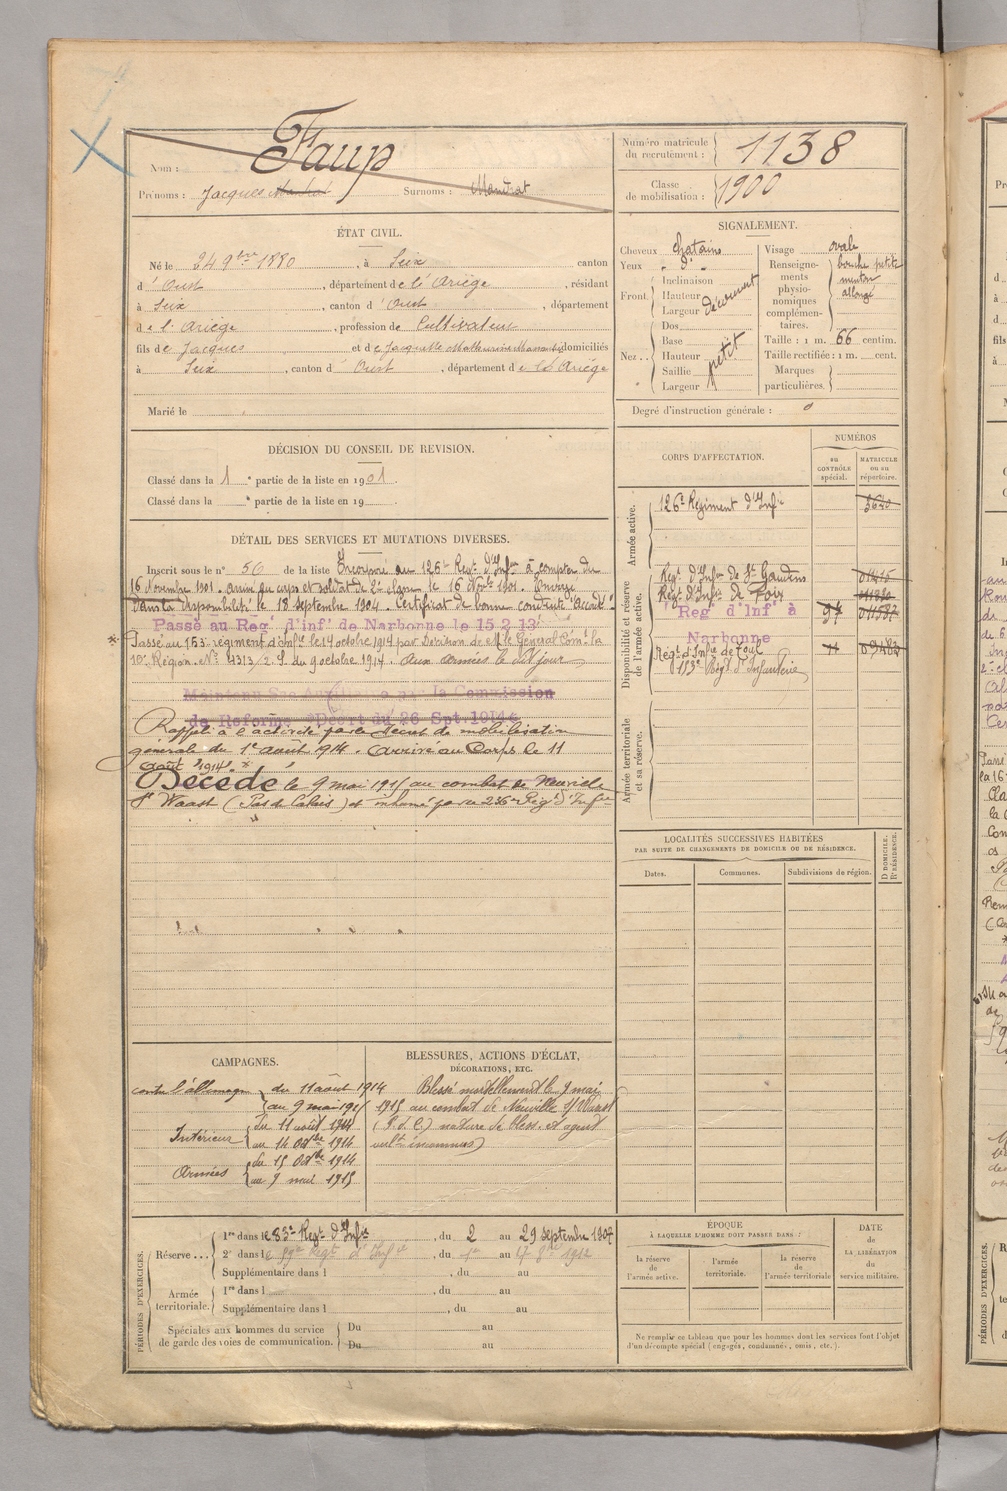 Nom : Faup
Prénoms : Jacques Surnoms : Mandrat
Numéro matricule du recrutement : 1138
Classe de mobilisation : 1900
ÉTAT CIVIL.
Né le 24 9bre 1880, à Seix canton
d'Oust, département de l'Ariège, résidant
à Seix, canton d'Oust, département
de l'Ariège, profession de Cultivateur
fils de Jacques et de Jacquette domiciliés
à Seix, canton d'Oust, département de l'Ariège
Marié le
SIGNALEMENT.
Cheveux chatains
Yeux d°
Front. Inclinaison
Hauteur
Largeur découvert
Nez.. Dos
Base
Hauteur petit
Saillie
Largeur
Visage ovale
Renseignements physionomiques complémentaires. bouche petite
menton
allongé
Taille : 1 m. 66 centim.
Taille rectifiée : 1 m. cent.
Marques particulières.
Degré d'instruction générale : 0
DÉCISION DU CONSEIL DE REVISION.
Classé dans la 1e partie de la liste en 1901.
Classé dans la e partie de la liste en 19
DÉTAIL DES SERVICES ET MUTATIONS DIVERSES.
Inscrit sous le n° 56 de la liste Incorporé au 126e Régt d'Infie à compter du
16 Novembre 1901. arrivé au corps et soldat de 2e classe le 16 Novbre 1901. Envoyé
dans la disponibilité le 18 septembre 1904. Certificat de bonne conduite "Accordé"
Passé au Reg' d'inf' de Narbonne le 15 2 13
* Passé au 153 régiment d'Infie le 14 octobre 1914 par Décision de Mr le Général Comt la
16e Région. N° 4313/2. S. du 9 octobre 1914. Aux armées le dit jour
Maintenu Sce Auxiliaire par la Commission
de Réforme Décret du 26 Spt 1914
Rappelé à l'activité par le décret de mobilisation
générale du 1er août 1914. Arrivé au Corps le 11
août 1914. *
Décédé le 9 mai 1915 au combat de Neuville
St Waast (Pas de Calais) et inhumé par le 236e Régt d'Infie
CORPS D'AFFECTATION.
NUMÉROS
au CONTRÔLE spécial.
MATRICULE ou au répertoire.
Armée active.
126e Régiment d'Infie
Disponibilité et réserve de l'armée active.
Régt d'Infie de St Gaudens
Régt d'Infie de Foix
Reg' d'Inf' à
Narbonne
Régt d'Infie de Toul
153e Régt d'Infanterie
Armée territoriale et sa réserve.
LOCALITÉS SUCCESSIVES HABITÉES
PAR SUITE DE CHANGEMENTS DE DOMICILE OU DE RÉSIDENCE.
Dates.
Communes.
Subdivisions de région.
D. DOMICILE. R. RÉSIDENCE.
CAMPAGNES.
contre l'allemagne du 11 août 1914
au 9 mai 1915
Intérieur du 11 août 1914
au 14 octbre 1914
Armées du 15 octbre 1914
au 9 mai 1915
BLESSURES, ACTIONS D'ÉCLAT,
DÉCORATIONS, ETC.
Blessé mortellement le 9 mai
1915 au combat de Neuville St Waast
(P. d. C.) nature de bless. et agent
vult inconnus)
PÉRIODES D'EXERCICES.
Réserve ... 1re dans le 83e Régt d'Infie, du 2 au 29 septembre 1907
2e dans le Régt d'Infie, du 1er au 1912
Supplémentaire dans l , du au
Armée territoriale. 1re dans l , du au
Supplémentaire dans l , du au
Spéciales aux hommes du service de garde des voies de communication. Du au
Du au
ÉPOQUE
À LAQUELLE L'HOMME DOIT PASSER DANS :
la réserve de l'armée active.
l'armée territoriale.
la réserve de l'armée territoriale
DATE DE LA LIBÉRATION du service militaire.
Ne remplir ce tableau que pour les hommes dont les services font l'objet
d'un décompte spécial (engagés, condamnés, omis, etc.).